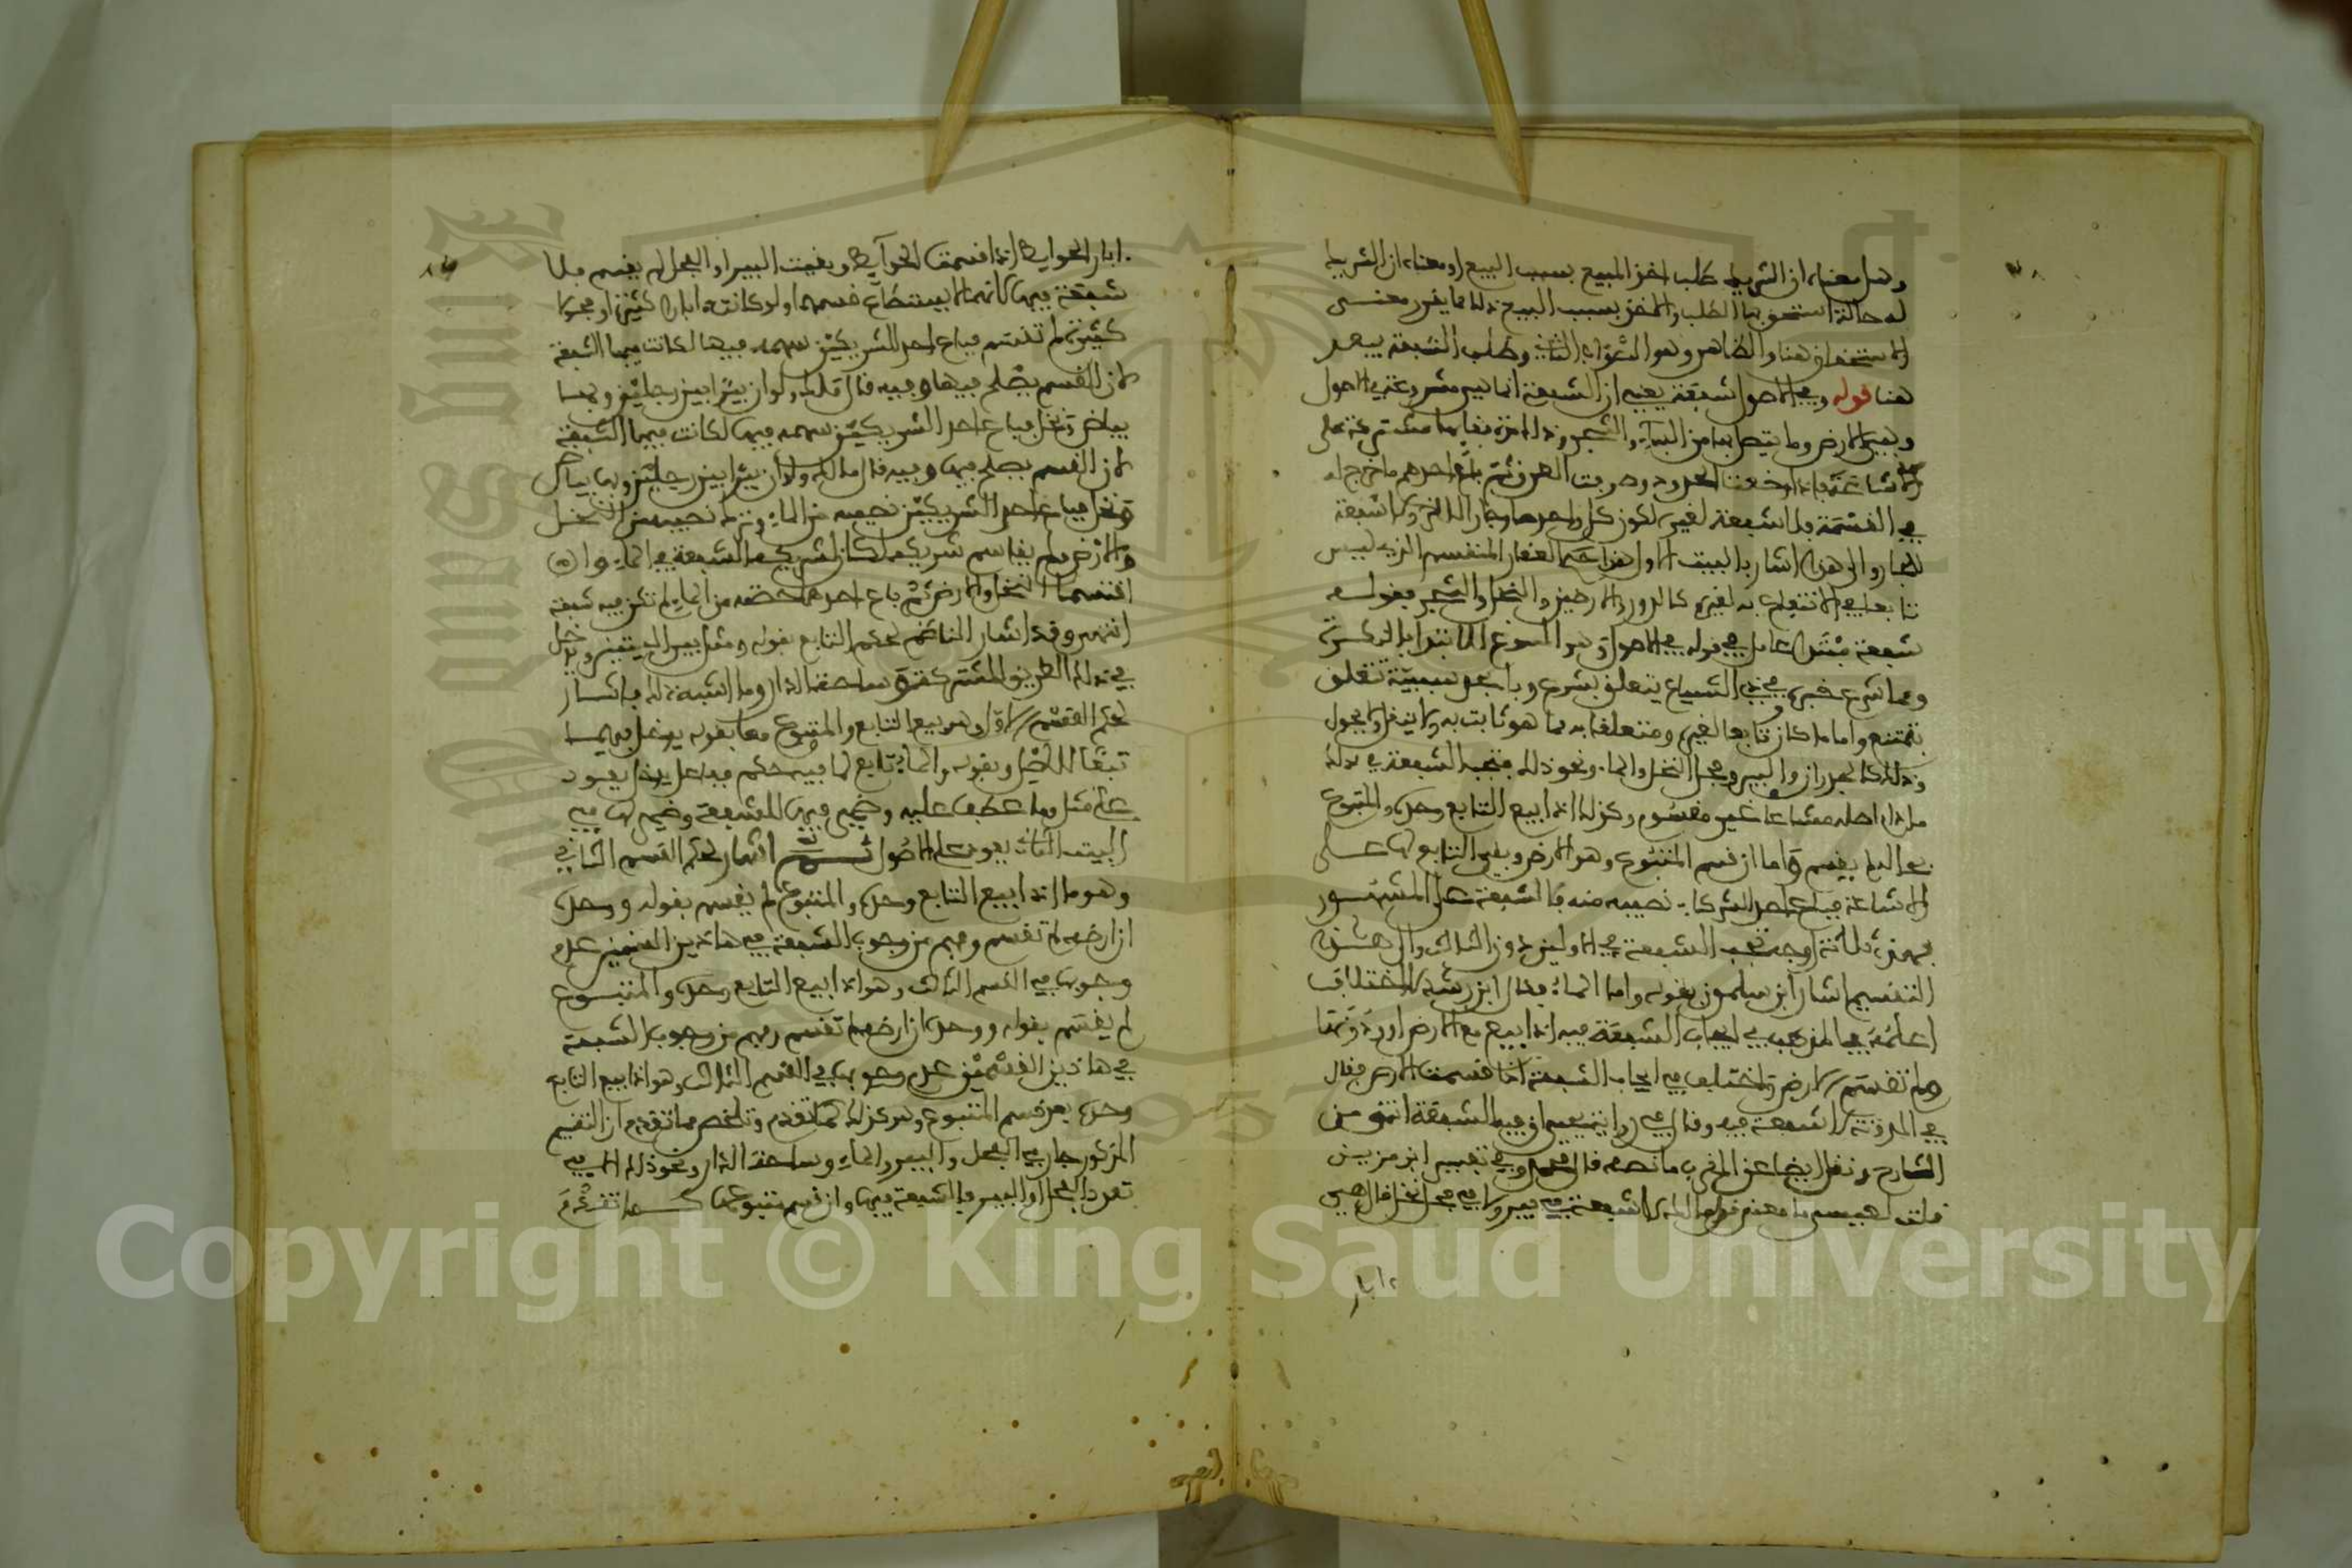 وهل معناه ان الشريك طلب اخذ المبيع بسبب البيع او معناه ان الشريك
له حالة استحق بها الطلب والاخذ بسبب البيع ذلك مما يقرر معنى
الاستحقاق هنا والظاهر وهو الثاني وطلب الشفعة يبعد
هنا قوله وفي الاصول شفعة يعني ان الشفعة انما هي مشروعة في الاصول
وهي الارض وما يتصل بها من البناء والشجر وذلك اذا بقاياها مشتركة على
الاشاعة فاذا وقعت الحدود وصرفت الطرق ثم باع احدهم ما خرج له
في القسمة فلا شفعة لغيره لكون كل واحد جار الاخر ولا شفعة
للجار والى هذا اشار بالبيت الاول هذا حكم العقار المنقسم الذي ليس
تابعا في الانتفاع به لغيره كالدور والارضين والنخل والشجر فقوله
شفعة مبتدا عامل في قوله في الاصول وهو المسوغ للابتدا بالنكرة
ومما شرع خبره في ذي الشياع يتعلق بشرع وباء سببية تتعلق
بتمتنع واما ما كان تابعا لغيره ومتعلقا به مما هو ثابت به ولا ينقل ولا يحول
وذلك كالجدران والبير وفحل النخل والماء ونحو ذلك فتجب الشفعة في ذلك
ما دام اصله مشاعا غير مقسوم وكذلك اذا بيع التابع وحده والمتبوع
بحاله لم يقسم واما ان قسم المتبوع وهو الارض وبقي التابع لها على
الاشاعة فباع احد الشركاء نصيبه منه فلا شفعة على المشهور
فهذه ثلاثة اوجه تجب الشفعة في الاولين دون الثالث والى هذا
التقسيم اشار ابن سلمون بقوله واما الماء فقال ابن رشد لا اختلاف
اعلمه في المذهب في ايجاب الشفعة فيه اذا بيع مع الارض او دونها
ولم تقسم الارض واختلف في ايجاب الشفعة اذا قسمت الارض فقال
في المدونة لا شفعة فيه وقال في رواية يحيى ان فيه الشفعة انتهى من
الشارح ونقل ايضا عن المغرب ما نصه قال محمد وفي تفسير ابن مزين
قلت لعيسى ما معنى قول مالك لا شفعة في بير ولا في فحل نخل قال هي
ءابار
ابار الحوايط اذا قسمت الحوايط وبقيت البير او الفحل لم يقسم فلا
شفعة فيها لانه لا يستطاع قسمها ولو كانت ابارا كثيرة او فحولا
كثيرة لم تقسم فباع احد الشريكين سهمه فيها لكانت فيها الشفعة
لان القسم يصلح فيها وفيه قال قلت ولو ان بيرا بين رجلين ولهما
بياض ونخل فباع احد الشريكين سهمه فيها لكانت فيها الشفعة
لان القسم يصلح فيها وفيه قال مالك ولو ان بيرا بين رجلين وبها بياض
ونخل فباع احد الشريكين نصيبه من الماء وترك نصيبه من النخل
والارض ولم يقاسم شريكه لكان لشريكه الشفعة في الماء وان
اقتسما النخل والارض ثم باع احدهما حصته من الماء لم تكن فيه شفعة
انتهى وقد اشار الناظم لحكم التابع بقوله ومثل بير البيتين ويدخل
في ذلك الطريق المشتركة وساحة الدار وما اشبه ذلك فاشار
لحكم القسم الاول وهو بيع التابع والمتبوع معا بقوله يدخل فيها
تبعا للاصل وبقوله والماء تابع لما فيه حكم فباعل يدخل يعود
على مثل وما عطف عليه وضمير فيها للشفعة وضمير لها في
البيت الثاني يعود على الاصول ثم اشار لحكم القسم الثاني
وهو ما اذا بيع التابع وحده والمتبوع لم يقسم بقوله ووحده
ان ارضه لم تقسم وفهم من وجوب الشفعة في هاذين القسمين عدم
وجوبها في القسم الثالث وهو اذا بيع التابع وحده والمتبوع
لم يقسم بقوله ووحده ان ارضه لم تقسم وفهم من وجوب الشفعة
في هاذين القسمين عدم وجوبها في القسم الثالث وهو اذا بيع التابع
وحده بعد قسم المتبوع وهو كذلك كما تقدم وتلخص مما تقدم ان التقسيم
المذكور جار في الفحل والبير والماء وساحة الدار ونحو ذلك
تعدد الفحل او البير فالشفعة فيها وان قسم متبوعها كما تقدم